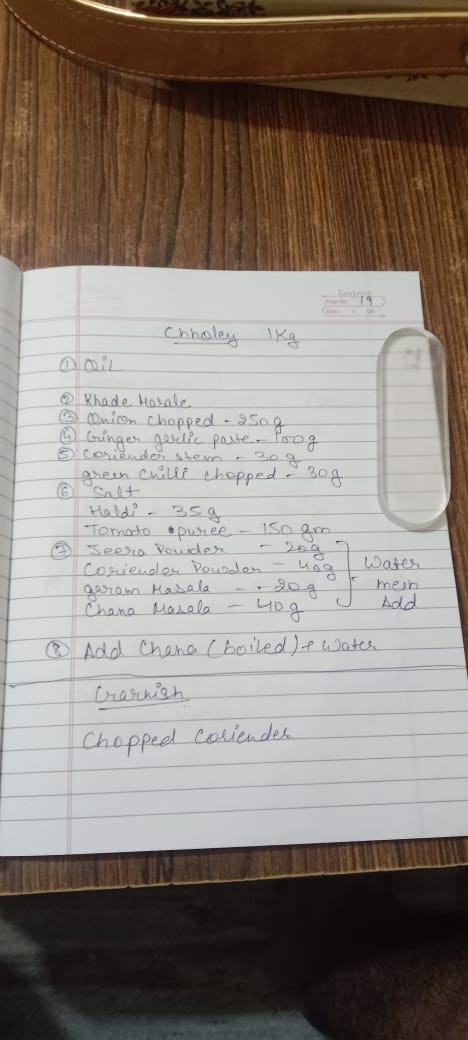 Page No. 19
Date: / /20
Chholey 1Kg
① Oil
② Khade Masale
③ Onion Chopped - 250g
④ Ginger garlic paste - 100g
⑤ Coriender stem - 30g
green Chilli chopped - 30g
⑥ Salt
Haldi - 35g
Tomato puree - 150 gm
⑦ Jeera Powder - 20g
Coriender Powder - 40g
garam Masala - 20g
Chana Masala - 40g
Water
mein
Add
⑧ Add Chana (boiled) + Water
Garnish
Chopped Coriender